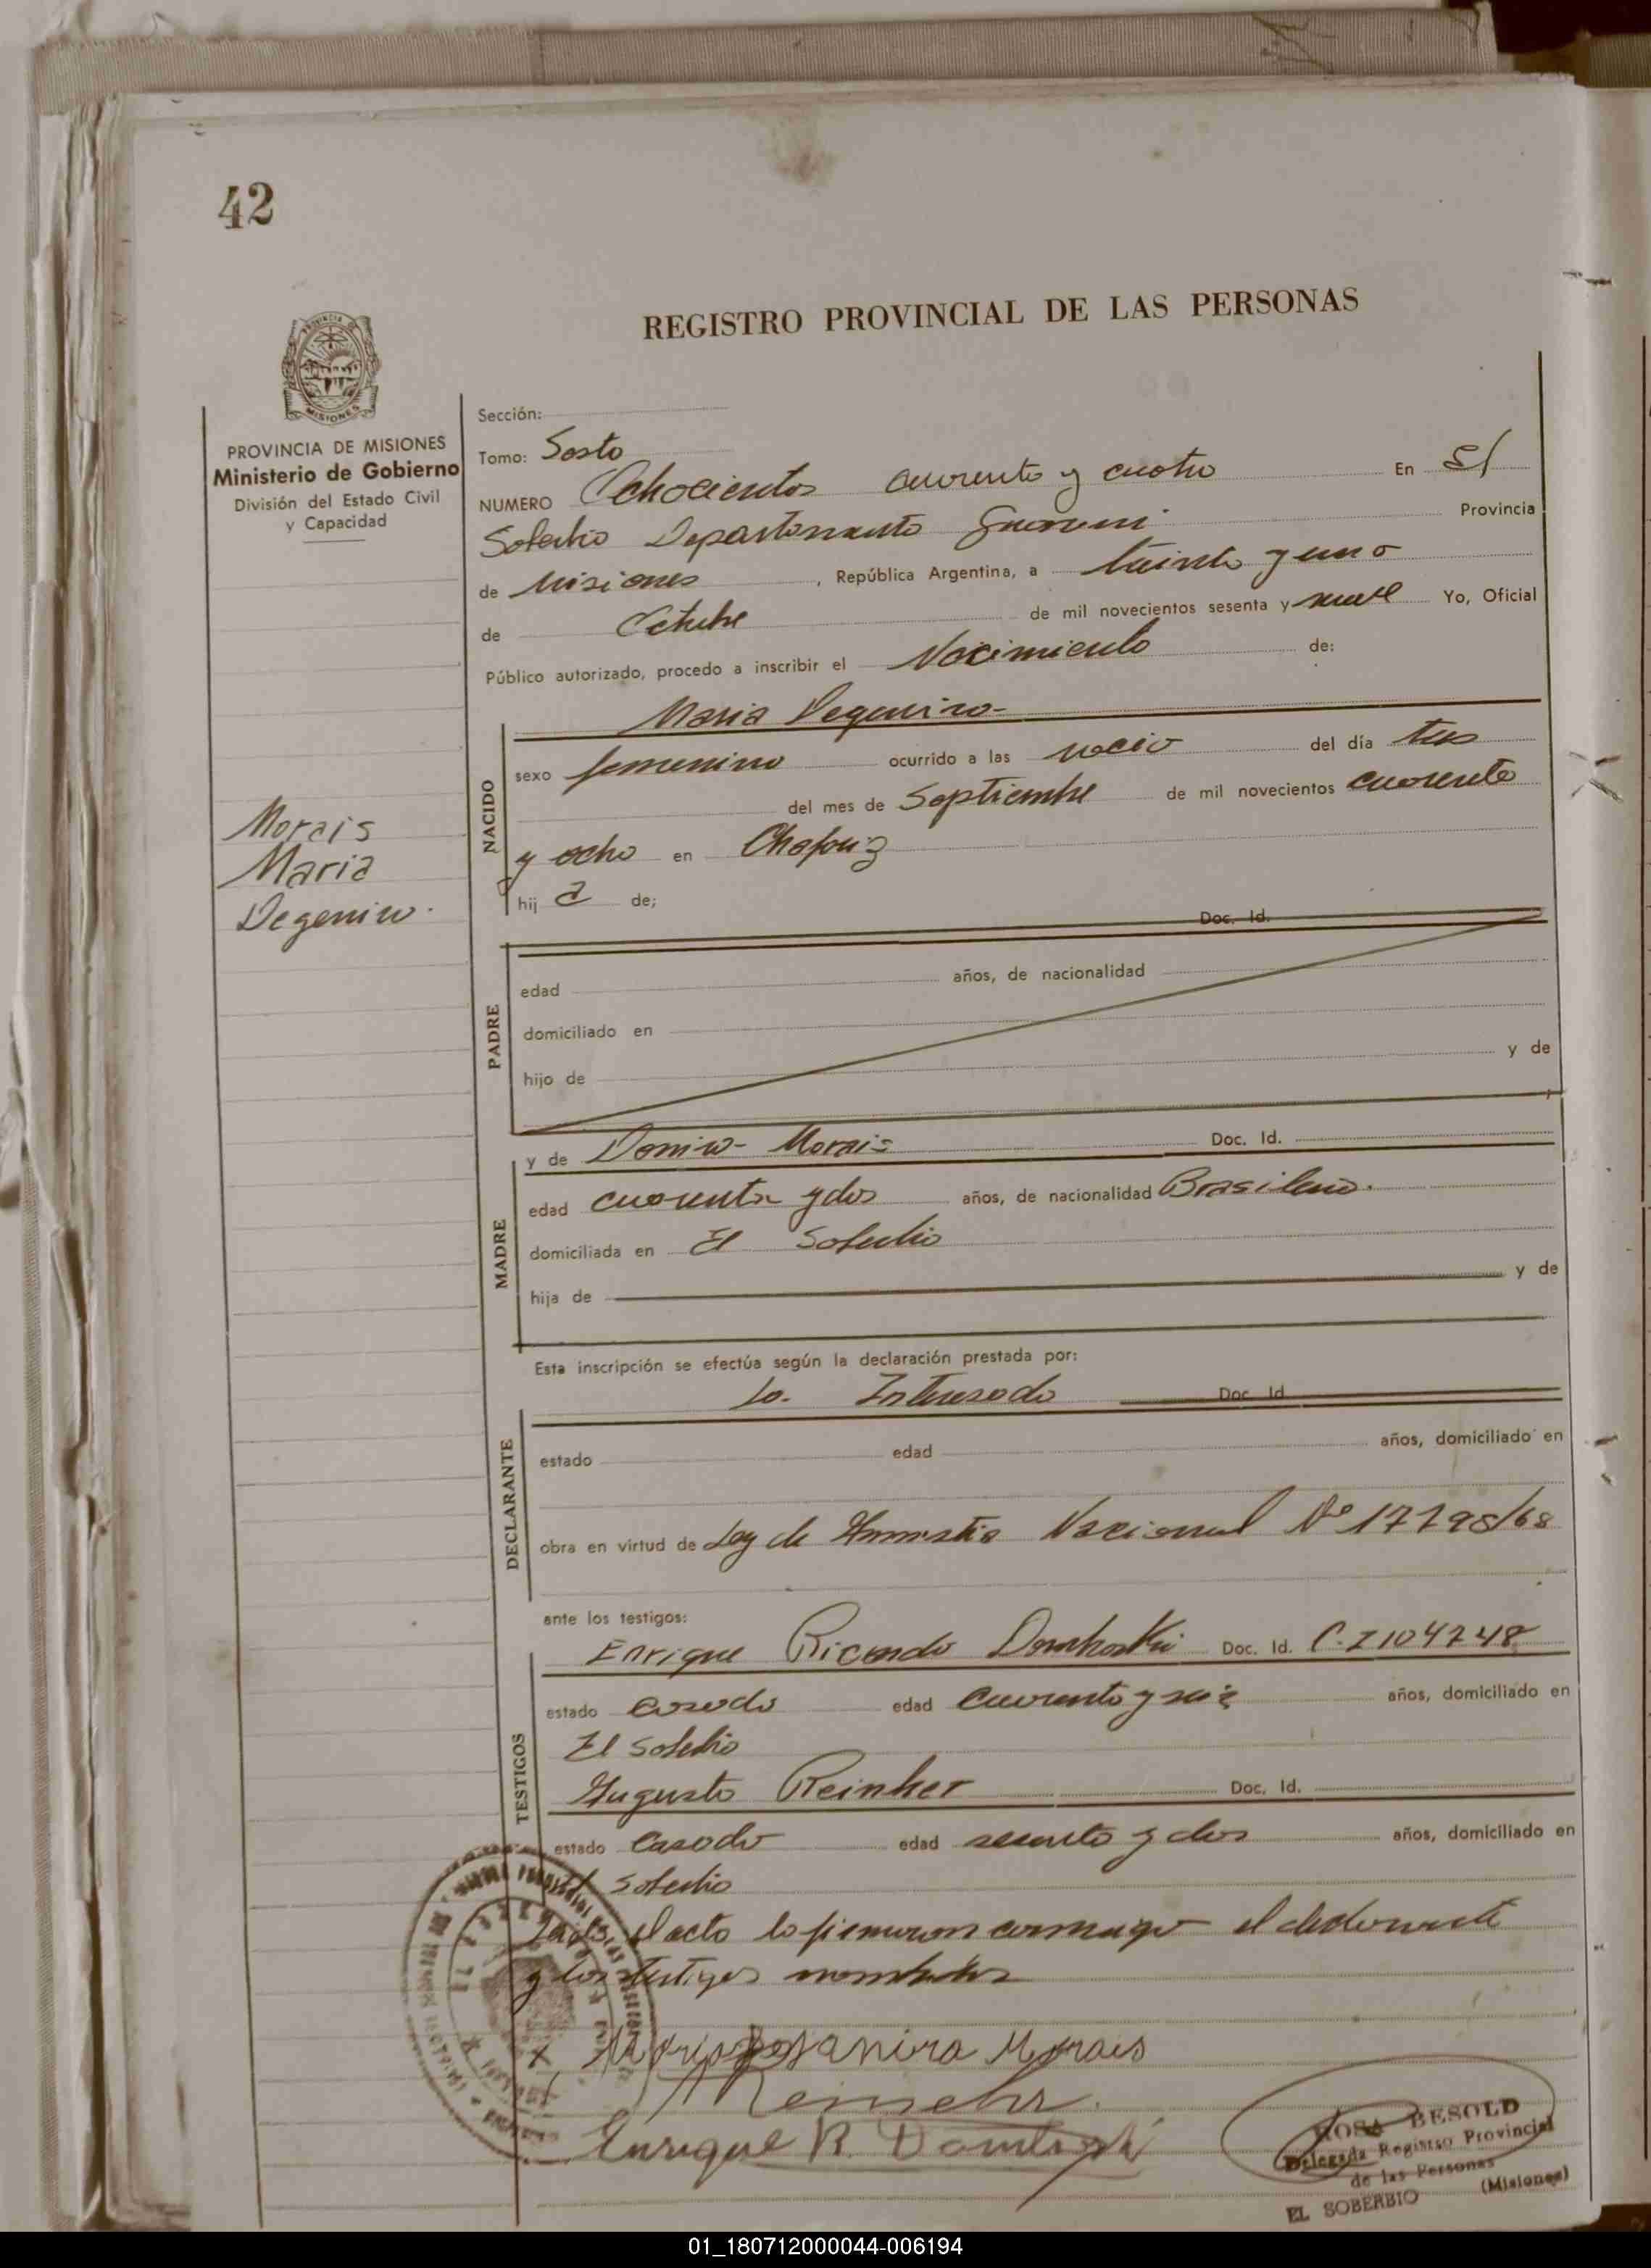 42
REGISTRO PROVINCIAL DE LAS PERSONAS
PROVINCIA DE
MISIONES
PROVINCIA DE MISIONES
Ministerio de Gobierno
División del Estado Civil
y Capacidad
Morais
Maria
Degenira
Sección:
Tomo: Sesto
NUMERO Ochocientos cuarenta y cuatro En El
Soberbio Departamento Guarani Provincia
de Misiones, República Argentina, a treinta y uno
de Octubre de mil novecientos sesenta y nueve Yo, Oficial
Público autorizado, procedo a inscribir el Nacimiento de:
Maria Degenira
NACIDO
sexo femenino ocurrido a las nació del día tres
del mes de Septiembre de mil novecientos cuarenta
y ocho en
hij a de;
Doc. Id.
PADRE
edad años, de nacionalidad
domiciliado en
hijo de y de
MADRE
y de Morais Doc. Id.
edad cuarenta y dos años, de nacionalidad Brasilena.
domiciliada en El Soberbio
hija de y de
Esta inscripción se efectúa según la declaración prestada por:
DECLARANTE
La Interesada Doc. Id.
estado edad años, domiciliado en
obra en virtud de Ley de Amnistia Nacional Nº 17798/68
ante los testigos:
TESTIGOS
Enrique Ricardo Doc. Id. C.I 104748
estado casado edad cuarenta y seis años, domiciliado en
El Soberbio
Augusto Reinher Doc. Id.
estado Casado edad sesenta y dos años, domiciliado en
El Soberbio
Leida el acto lo firmaron conmigo el declarante
y los testigos nombrados
x Maria Morais
Enrique R.
ROSA BESOLD
Delegada Registro Provincial
de las Personas
EL SOBERBIO (Misiones)
01_180712000044-006194